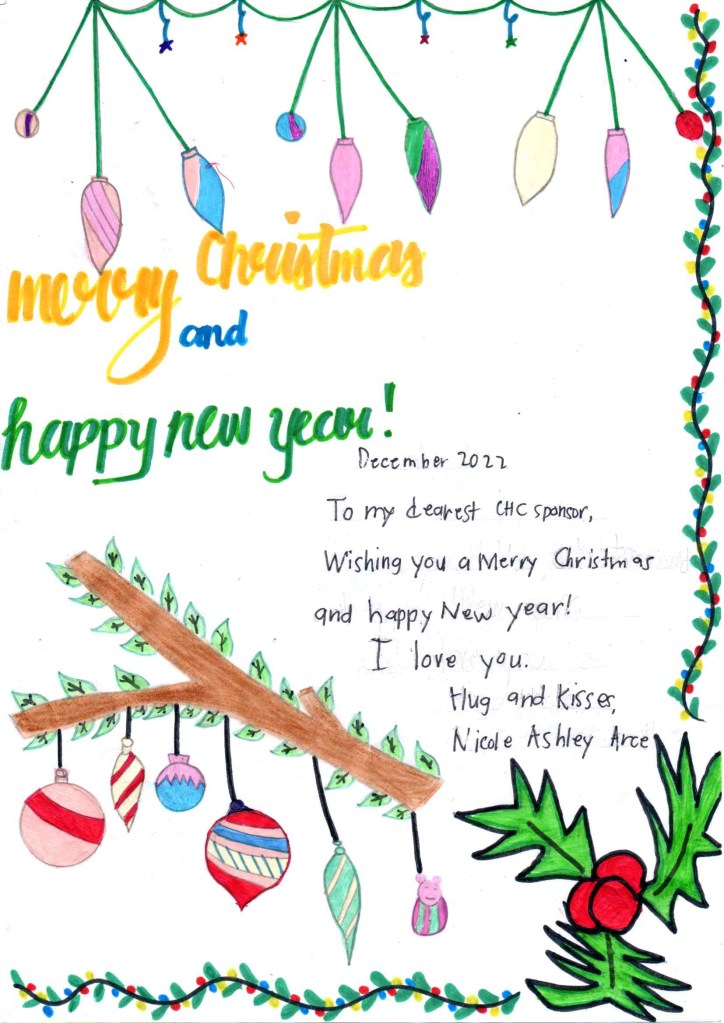 merry Christmas
and
happy new year!
December 2022
To my dearest CHC sponsor,
Wishing you a Merry Christmas
and happy New year!
I love you.
Hug and Kisses,
Nicole Ashley Arce